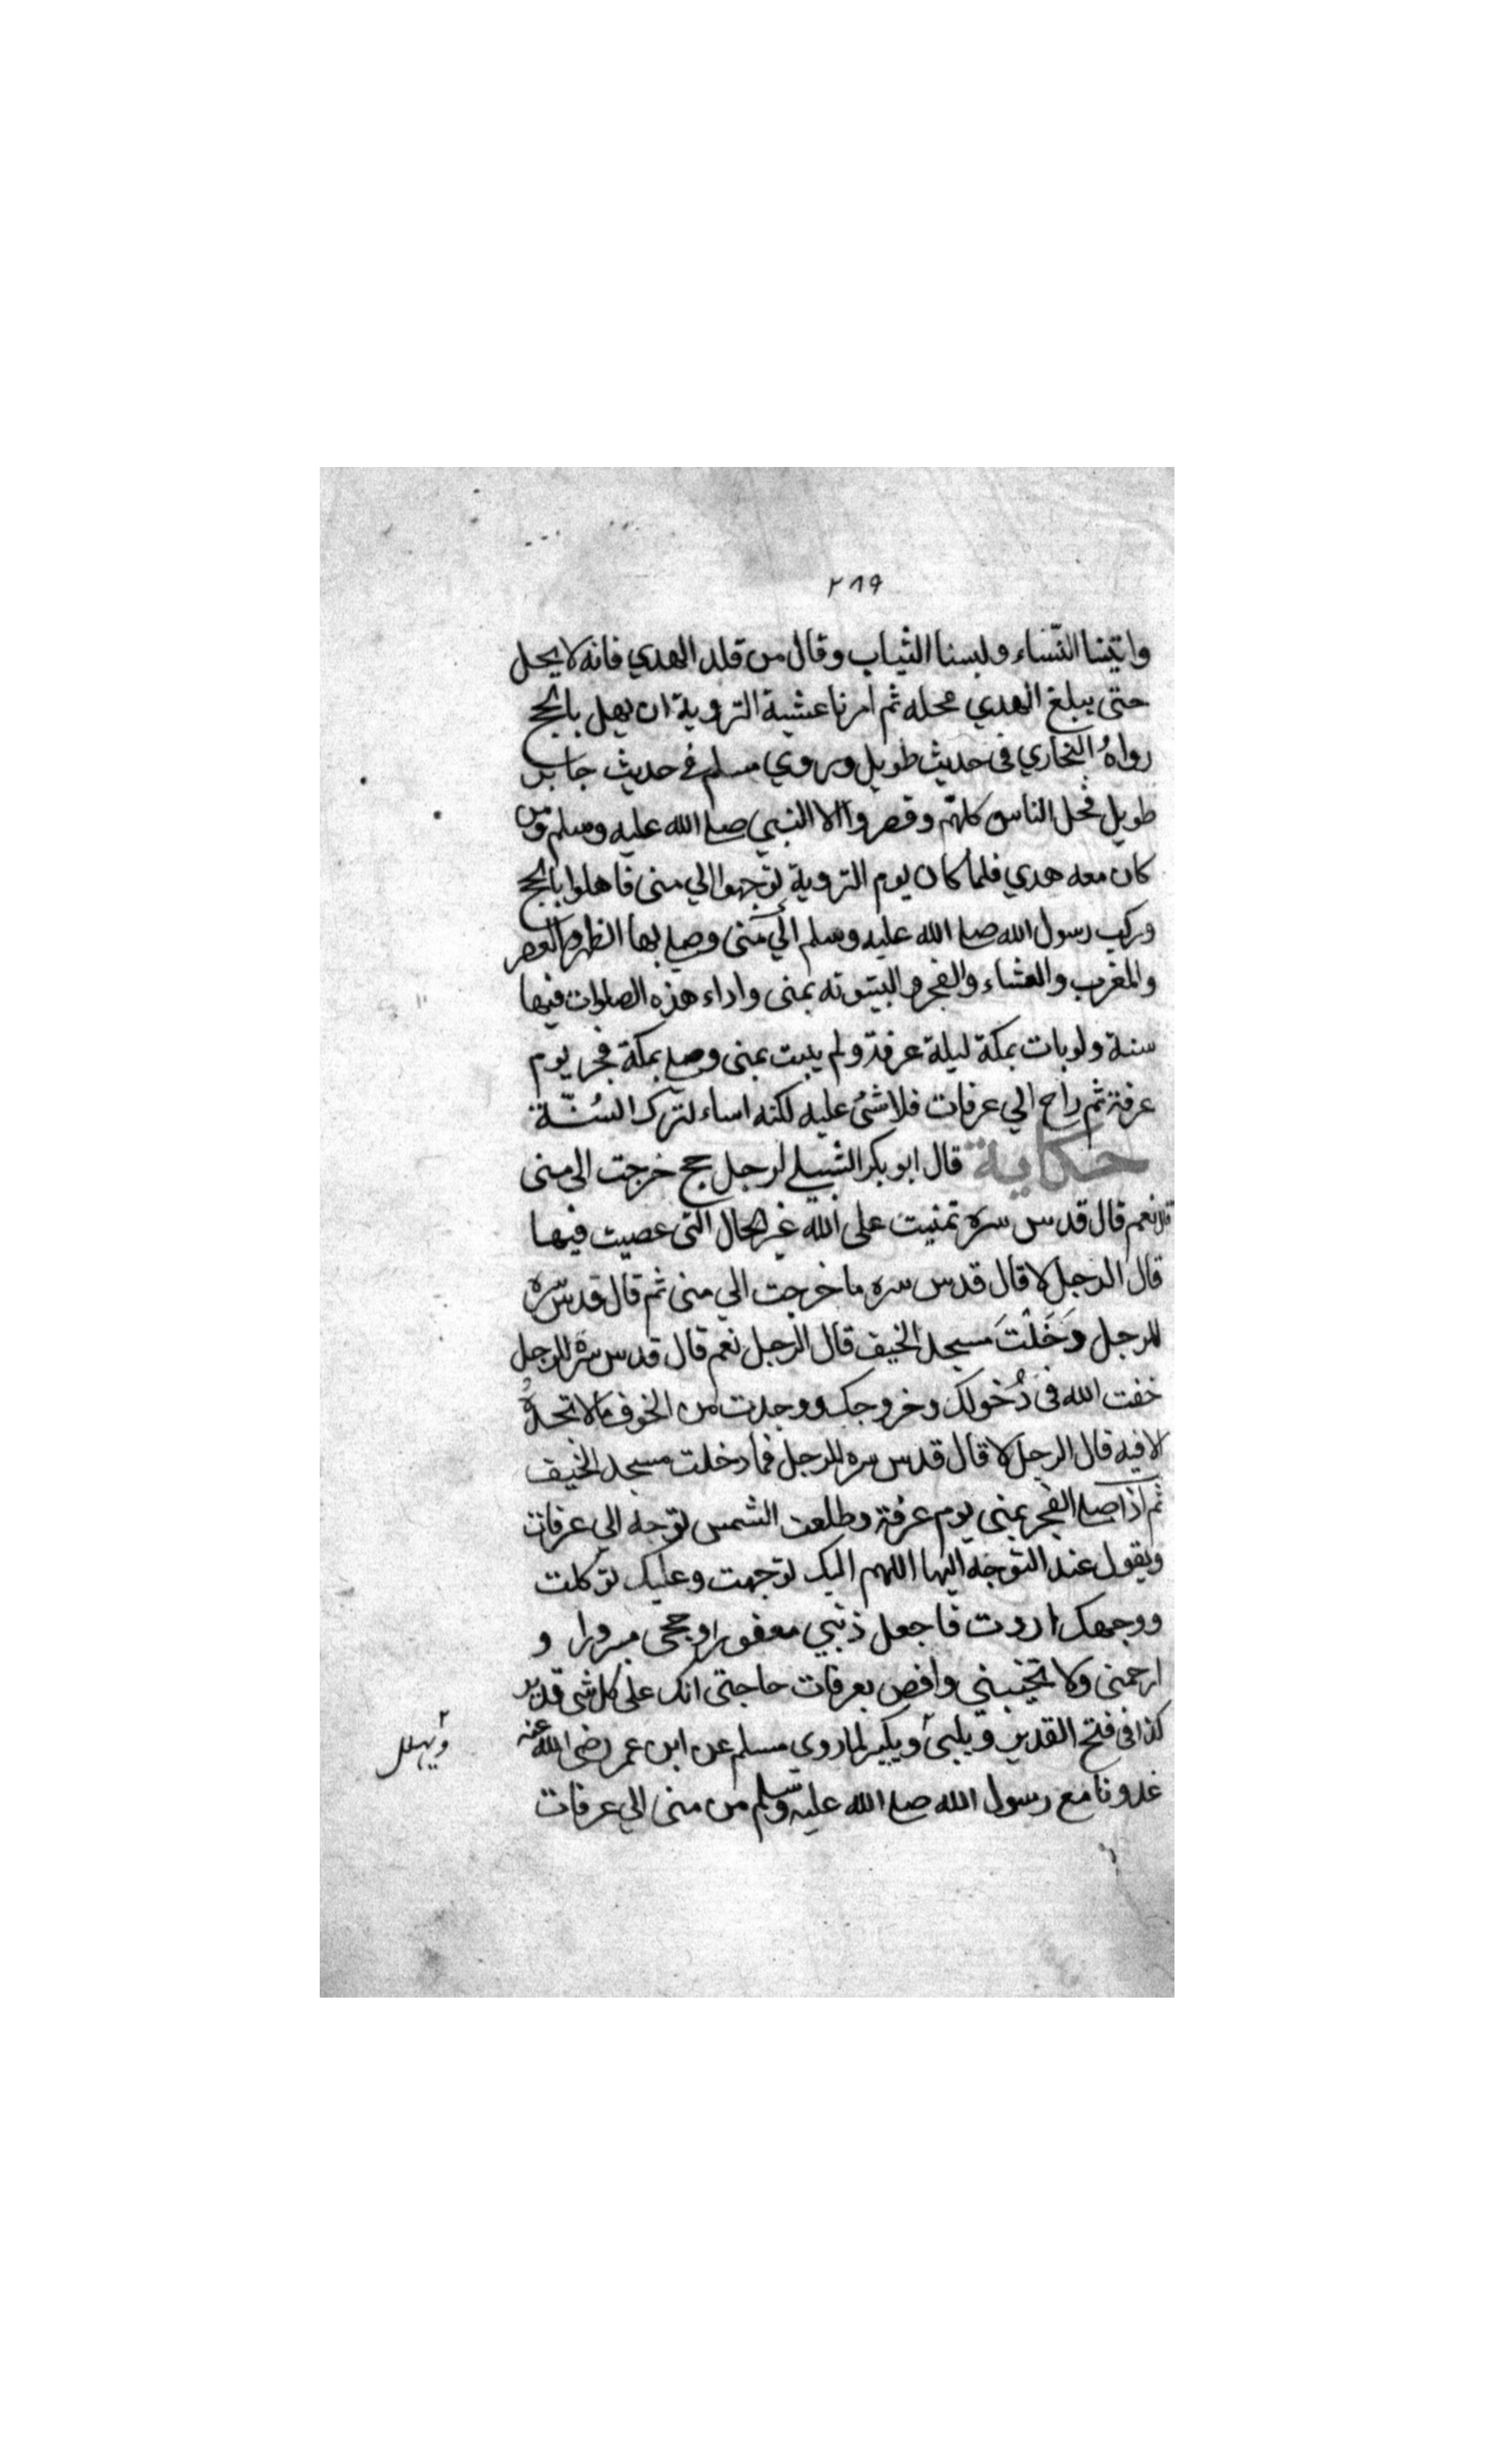 ٢٨٩
واتينا النّساء ولبسنا الثياب وقال من قلد الهدي فانه لا يحل
حتى يبلغ الهدي محله ثم امرنا عشية التروية ان يهل بالحج
رواهُ البخاري فى حديث طويل وروي مسلم في حديث جابر
طويل فحل الناس كلهم وقصروا الا النبي صلى الله عليه وسلم ومن
كان معه هدي فلما كان يوم التروية توجهوا الي منى فاهلوا بالحج
وركب رسول الله صلى الله عليه وسلم الي منى وصلى بها الظهر والعصر
والمغرب والعشاء والفجر والبيتوتة بمنى واداء هذه الصلوات فيها
سنة ولو بات بمكة ليلة عرفة ولم يبت بمنى وصلى بمكة فجر يوم
عرفة ثم راح الي عرفات فلا شئ عليه لكنه اساء لترك السُنّة
حكاية قال ابو بكر الشبلي لرجل حج خرجت الى منى
قال نعم قال قدس سره تمنيت على الله غير الحال التى عصيت فيها
قال الرجل لا قال قدس سره ما خرجت الي منى ثم قال قدس سره
للرجل دَخَلْتَ مسجد الخيف قال الرجل نعم قال قدس سره للرجل
خفت الله فى دُخولك وخروجك ووجدت من الخوف ما لا تجدهُ
الا فيه قال الرجل لا قال قدس سره للرجل فما دخلت مسجد الخيف
ثم اذا صلى الفجر بمنى يوم عرفة وطلعت الشمس توجه الي عرفات
ويقول عند التوجه اليها اللهم اليك توجهت وعليك توكلت
ووجهك اردت فاجعل ذنبي مغفورا وحجى مبرورا و
ارحمنى ولا تخيبني واقض بعرفات حاجتى انك على كل شى قدير
كذا فى فتح القدير ويلبى ويكبر لما روي مسلم عن ابن عمر رضى الله عنه
ويهلل
غدونا مع رسول الله صلى الله عليه وسلم من منى الي عرفات